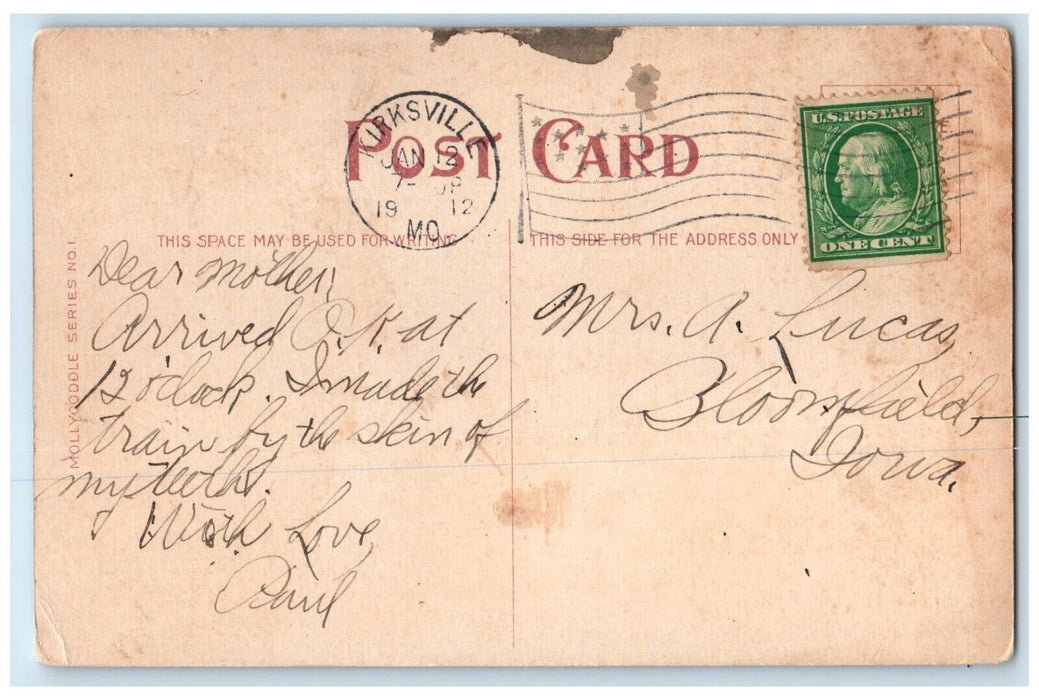 POST CARD
KIRKSVILLE
JAN 12
7-
19 12
MO.
U.S. POSTAGE
ONE CENT
THIS SPACE MAY BE USED FOR WRITING
THIS SIDE FOR THE ADDRESS ONLY
MOLLYCODDLE SERIES NO. 1.
Dear Mother,
Arrived O.K. at
12 o'clock. I made the
train by the skin of
my teeth.
With Love,
Paul
Mrs. A. Lucas,
Bloomfield,
Iowa.